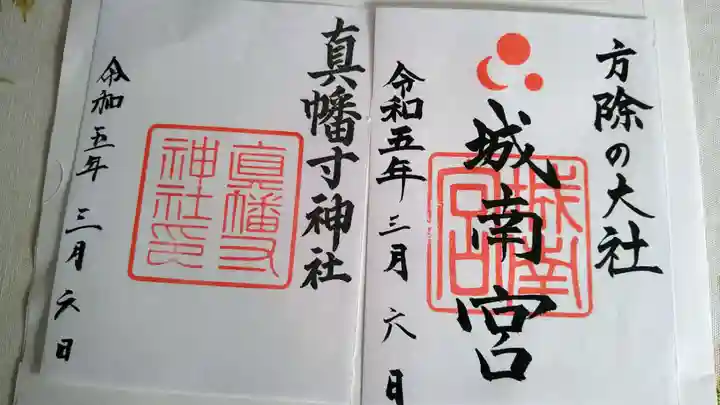 方除の大社
城南宮
城南宮
令和五年三月六日
真幡寸神社
真幡寸神社印
令和五年三月六日